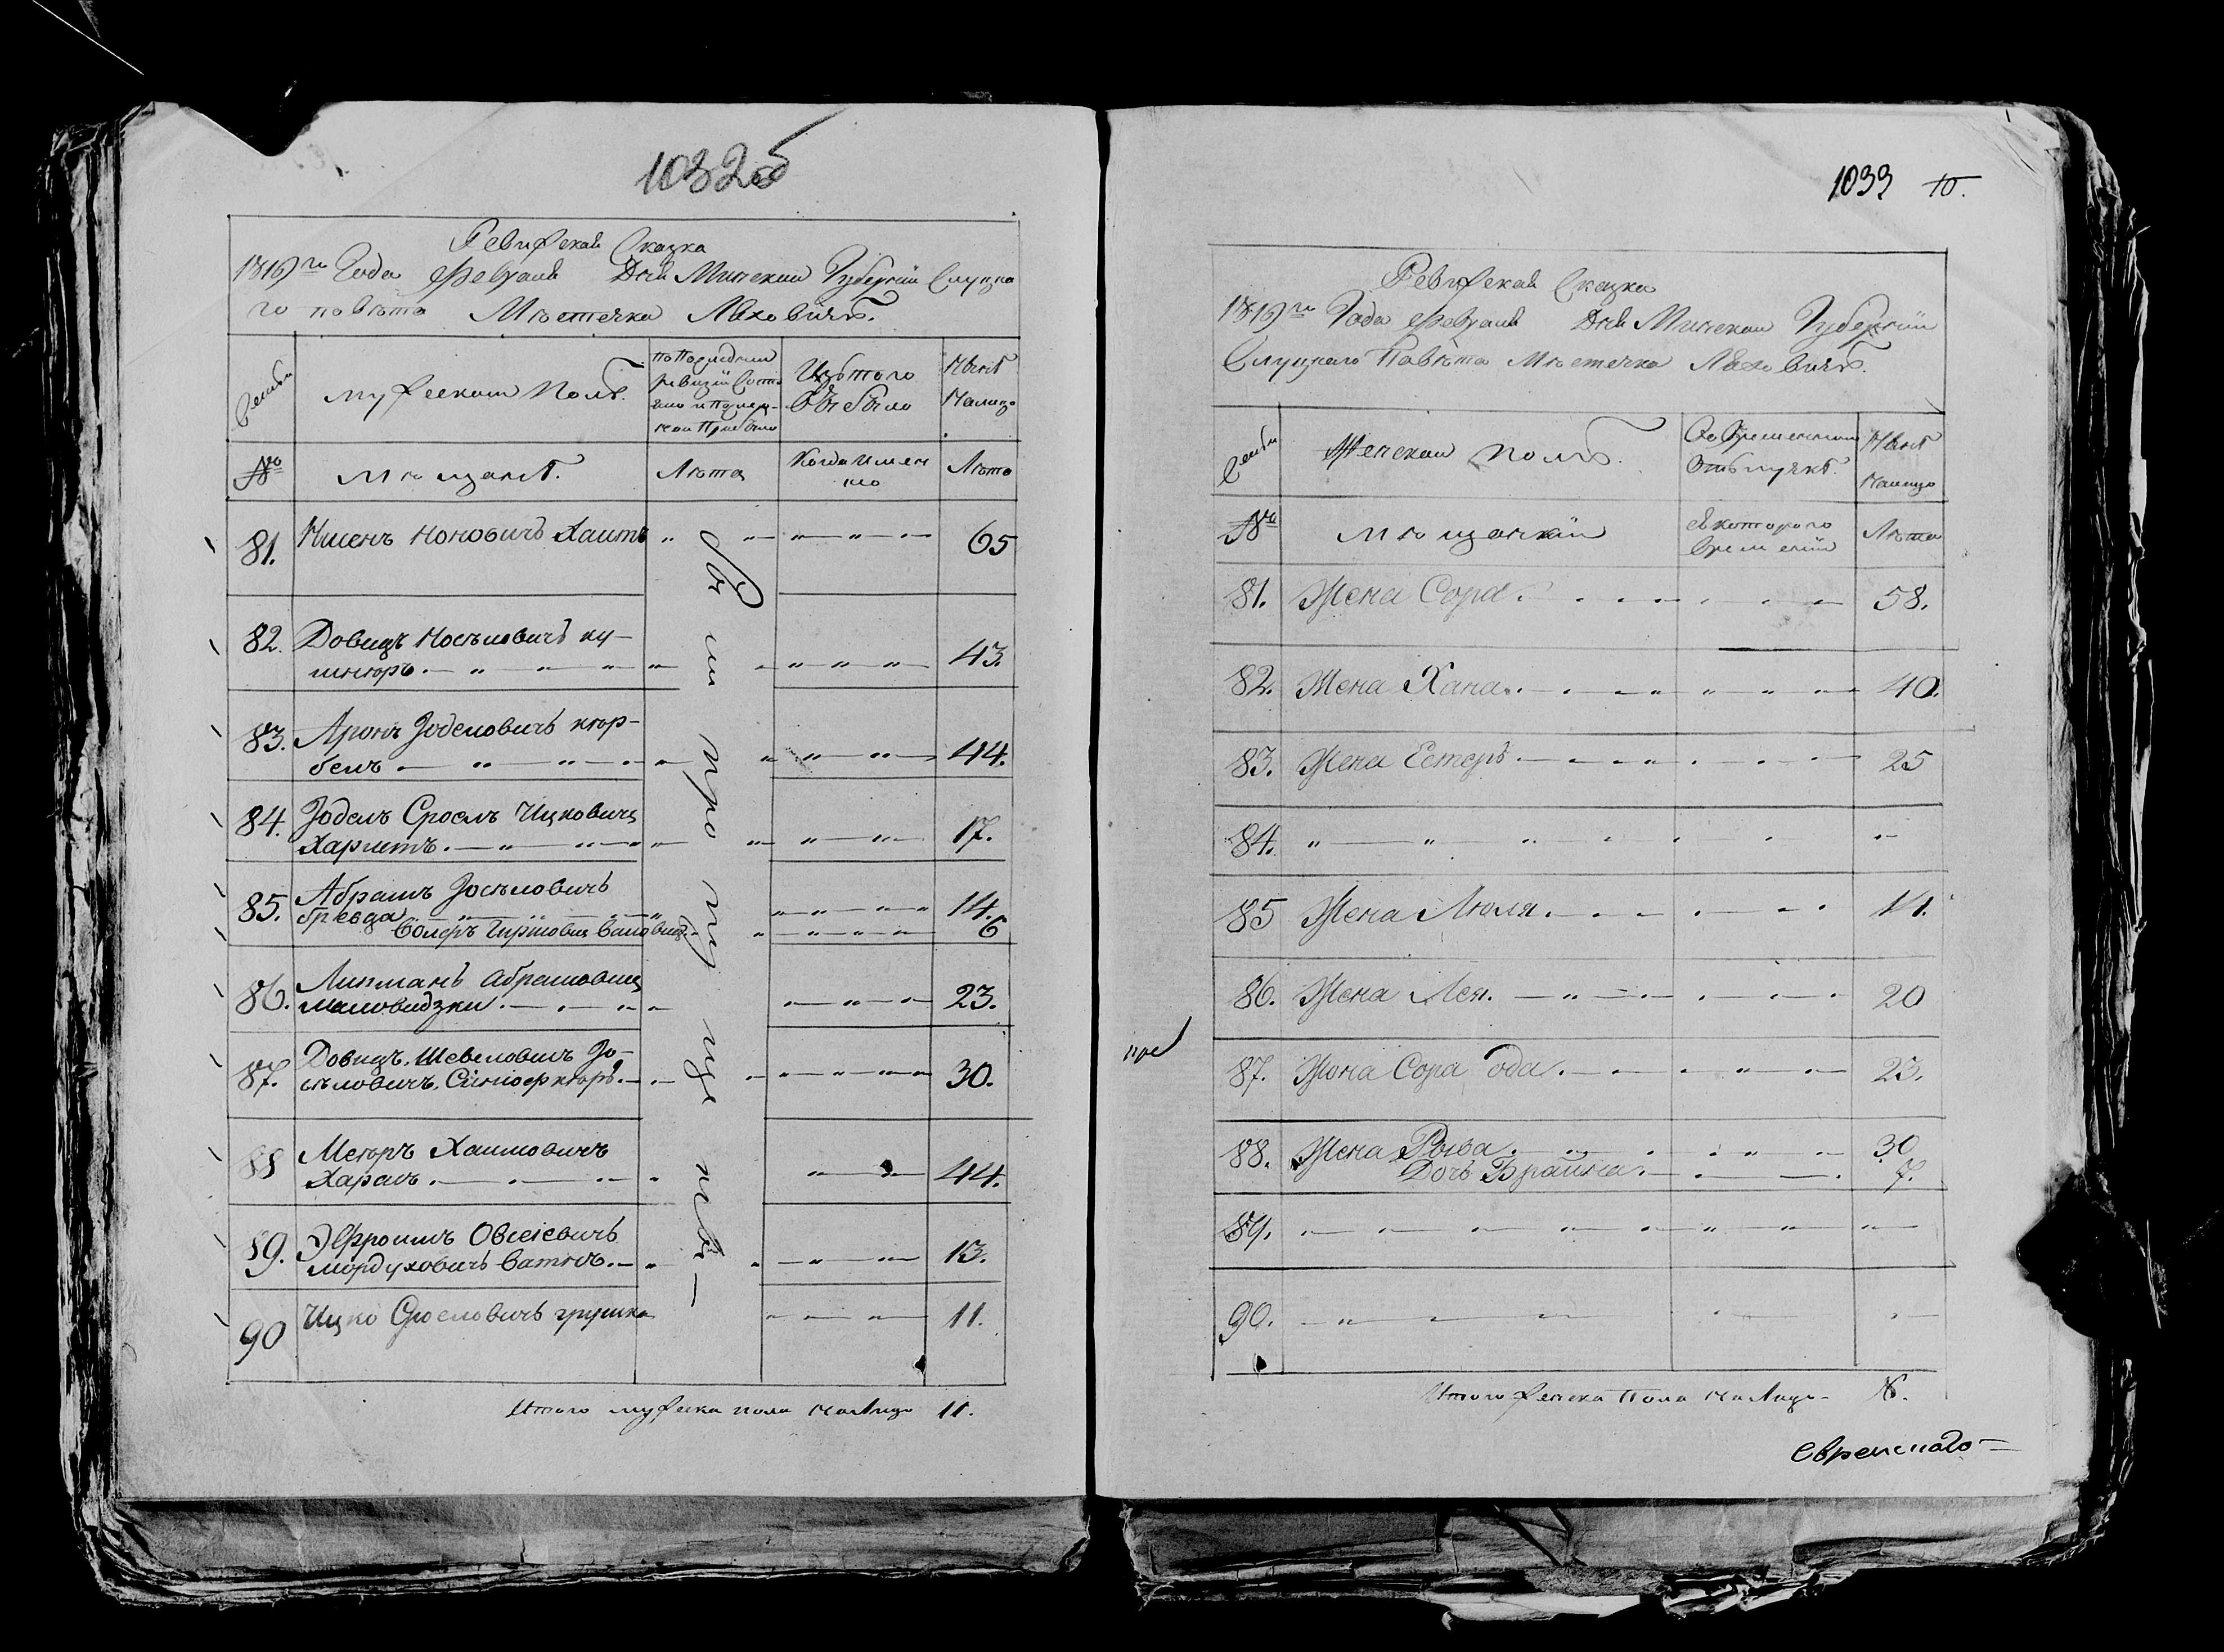 1032об
Ревижская Сказка
1816го Года февраля Дня Минской Губернии Слуцка
го повета Местечка Ляховичъ.
Семьи
мужескаго Полъ.
По Последней
ревизии Состо
яло и После
ней Прибыло
Изъ того
Выбыло
Ныне
Налицо
№
мещане.
Лета
Когда имен
но
Лета
81. Нисенъ Ноновичъ Хаитъ 65
82. Довидъ Иосѣловичъ ку-
шнеръ. 43.
83. Аронъ Іоделовичъ кор-
белъ 44.
84. Іодель Сроелъ Ицковичъ
Харитъ. 17.
85. Абрамъ Іосѣловичъ
бревда 14.
Гиршовичъ 6
86. Липманъ Абрамовичъ
маловидзки. 23.
87. Довидъ. Шевеловичъ Іо-
сѣловичъ. 30.
88 Мееръ Хаимовичъ
Харалъ. 44.
89. Эфроимъ Овсеіевичъ
мордуховичъ 13.
90 Ицко Сроеловичъ грушка 11.
Итого мужеска пола на Лицо 11.
1033 10.
Ревижская Сказка
1816го Года февраля Дня Минской Губернии
Слуцкаго Повѣта Мѣстечка Ляховичъ.
Семьи
Женской полъ.
Во Временной
Отлучке.
Ныне
Налицо
№
мещанкии
Съ которого
времении
Лета
81. Жена Сора. 58.
82. Жена Хана. 40.
83. Жена Естеръ 25
84.
85 Жена Люля. 14.
86. Жена Лея. 20
87. Жона Сора ода. 23.
88. Жена Рыва. 30
Дочь Браина. 7.
89.
90.
Итого женска Пола на Лицо 8.
Еврейскаго